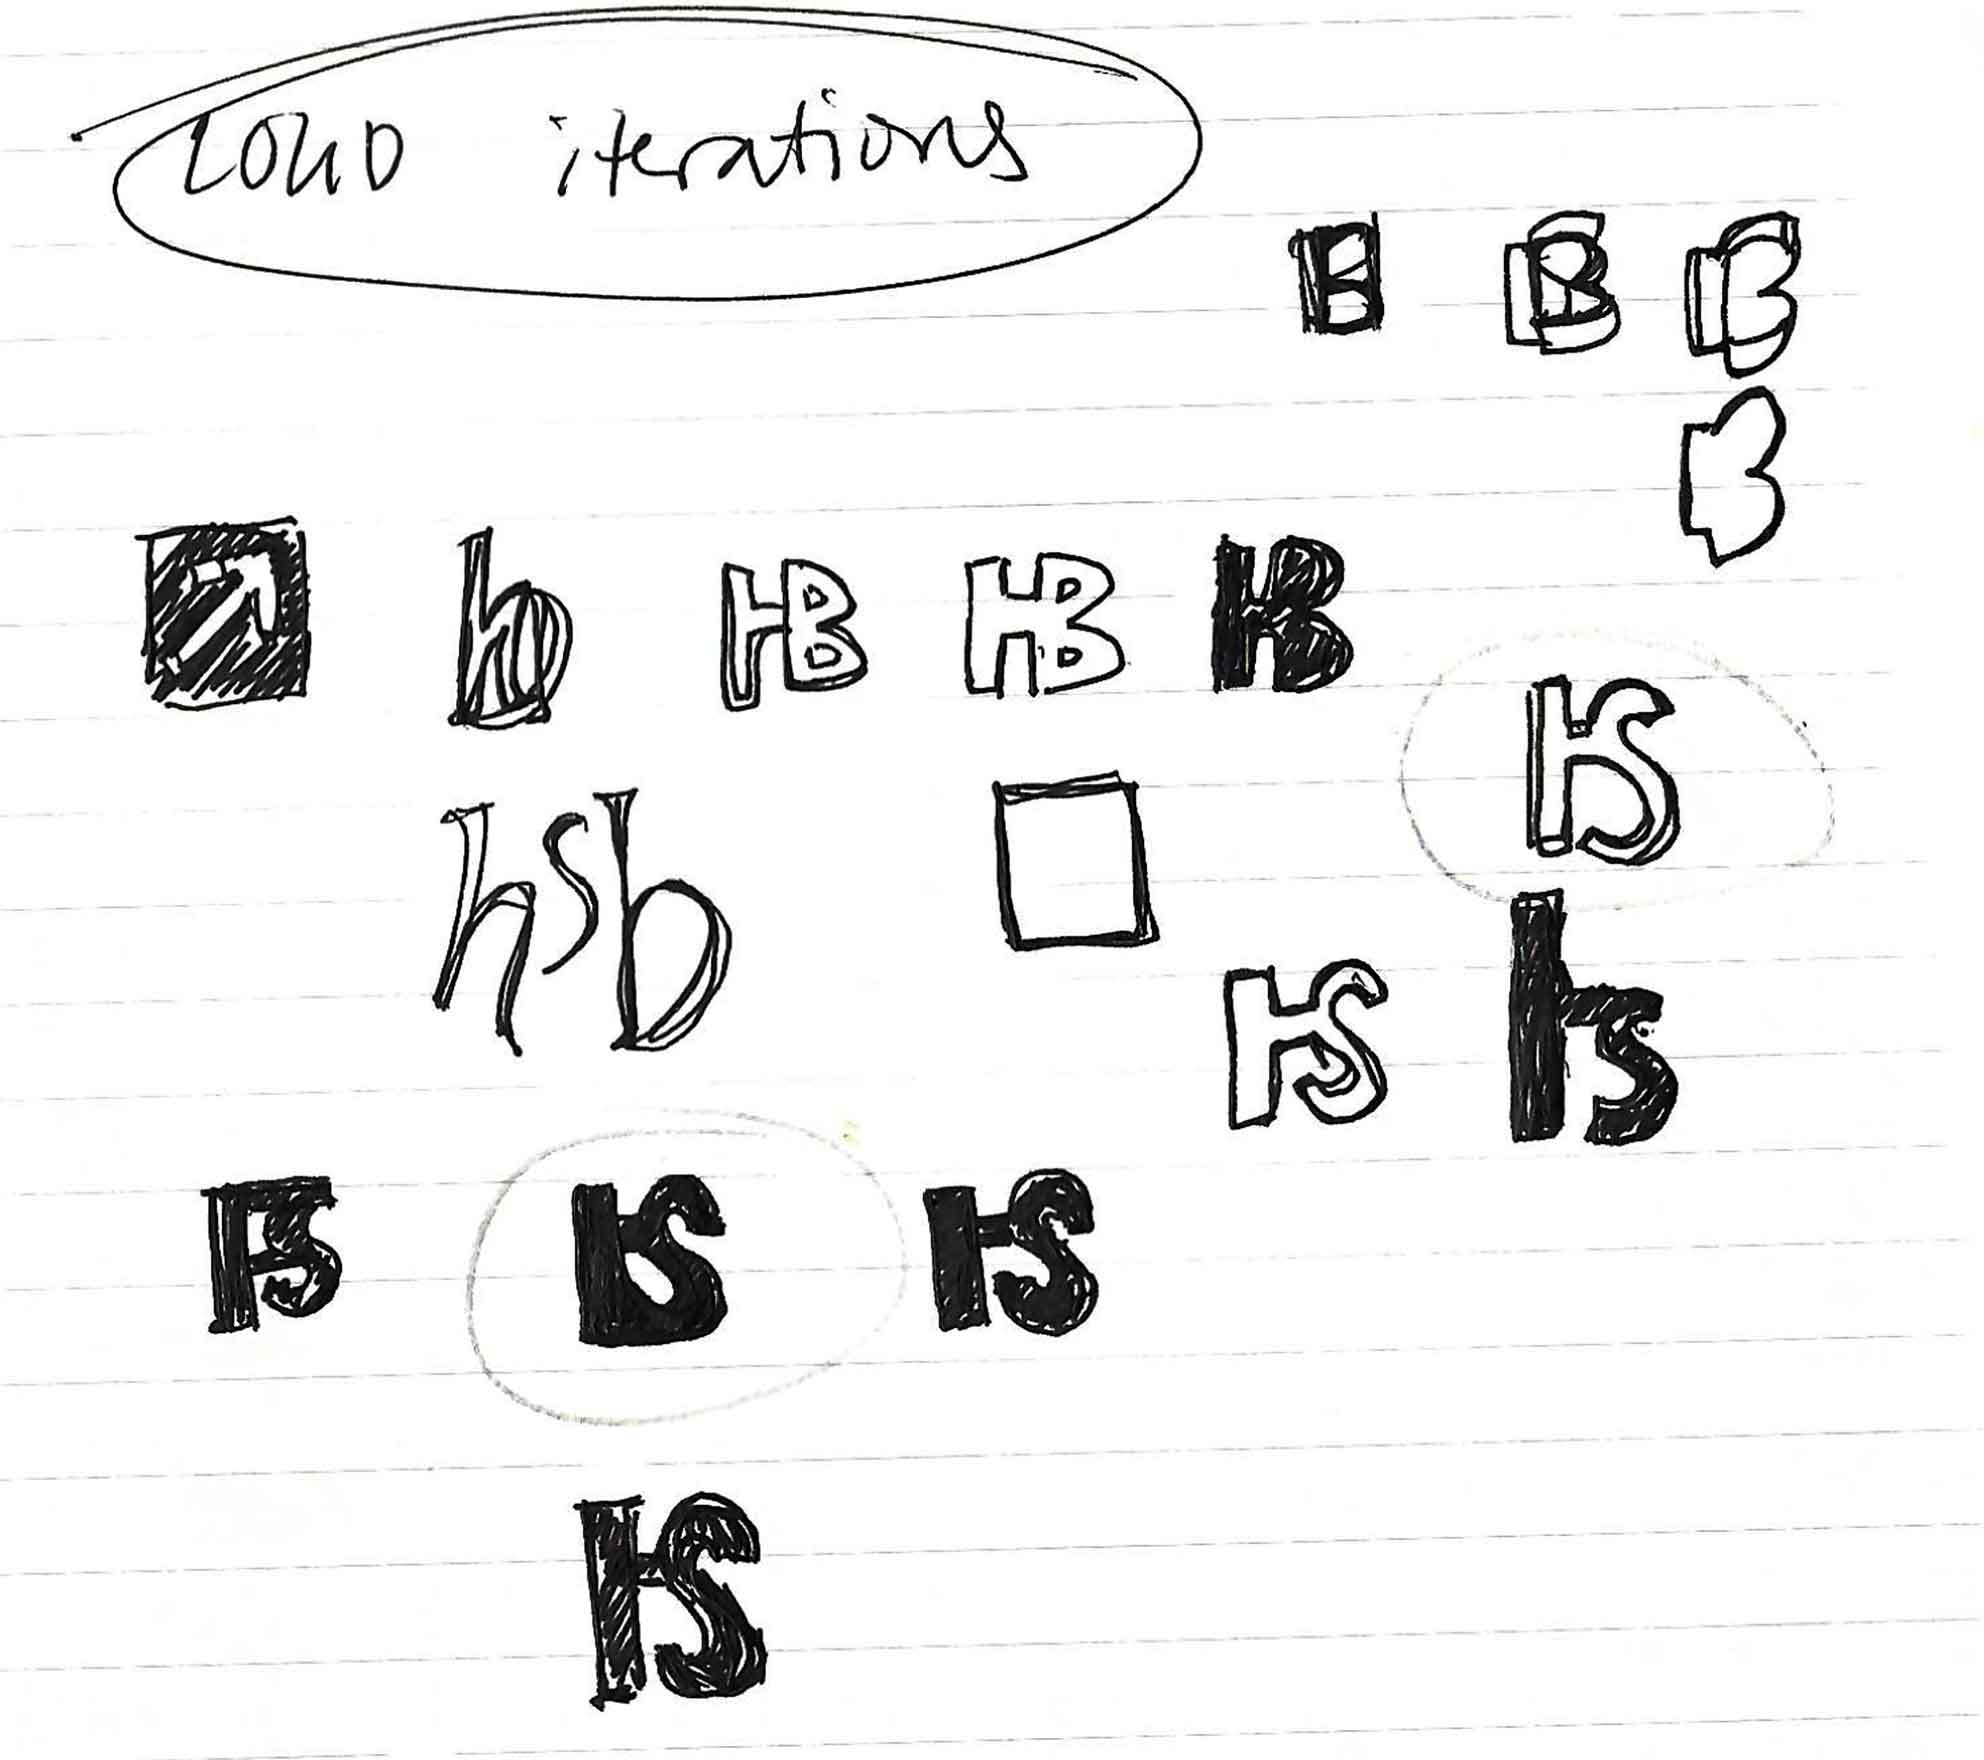 LOGO iterations
B B B
B
h HB HB HB
HS
hsb
HS hs
FS HS HS
HS